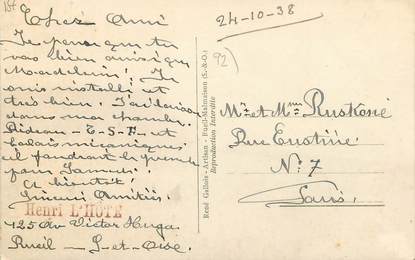 Cher Ami
Je pense que tu
vas bien ainsi que
Madeleine. Je
suis installé et
très bien. J'ai
dans ma chambre
Rideau - E - S - F - et
balais mécaniques
il faudrait le
pour Samedi.
A bientôt
Amitiés
Henri L'HOTE
125 Av Victor Hugo
Rueil - S-et-Oise
René Gallois - Artisan - Rueil-Malmaison (S.-&-O.)
Reproduction Interdite
24-10-38
92
Mr et Mme
Rue
No 7
Paris